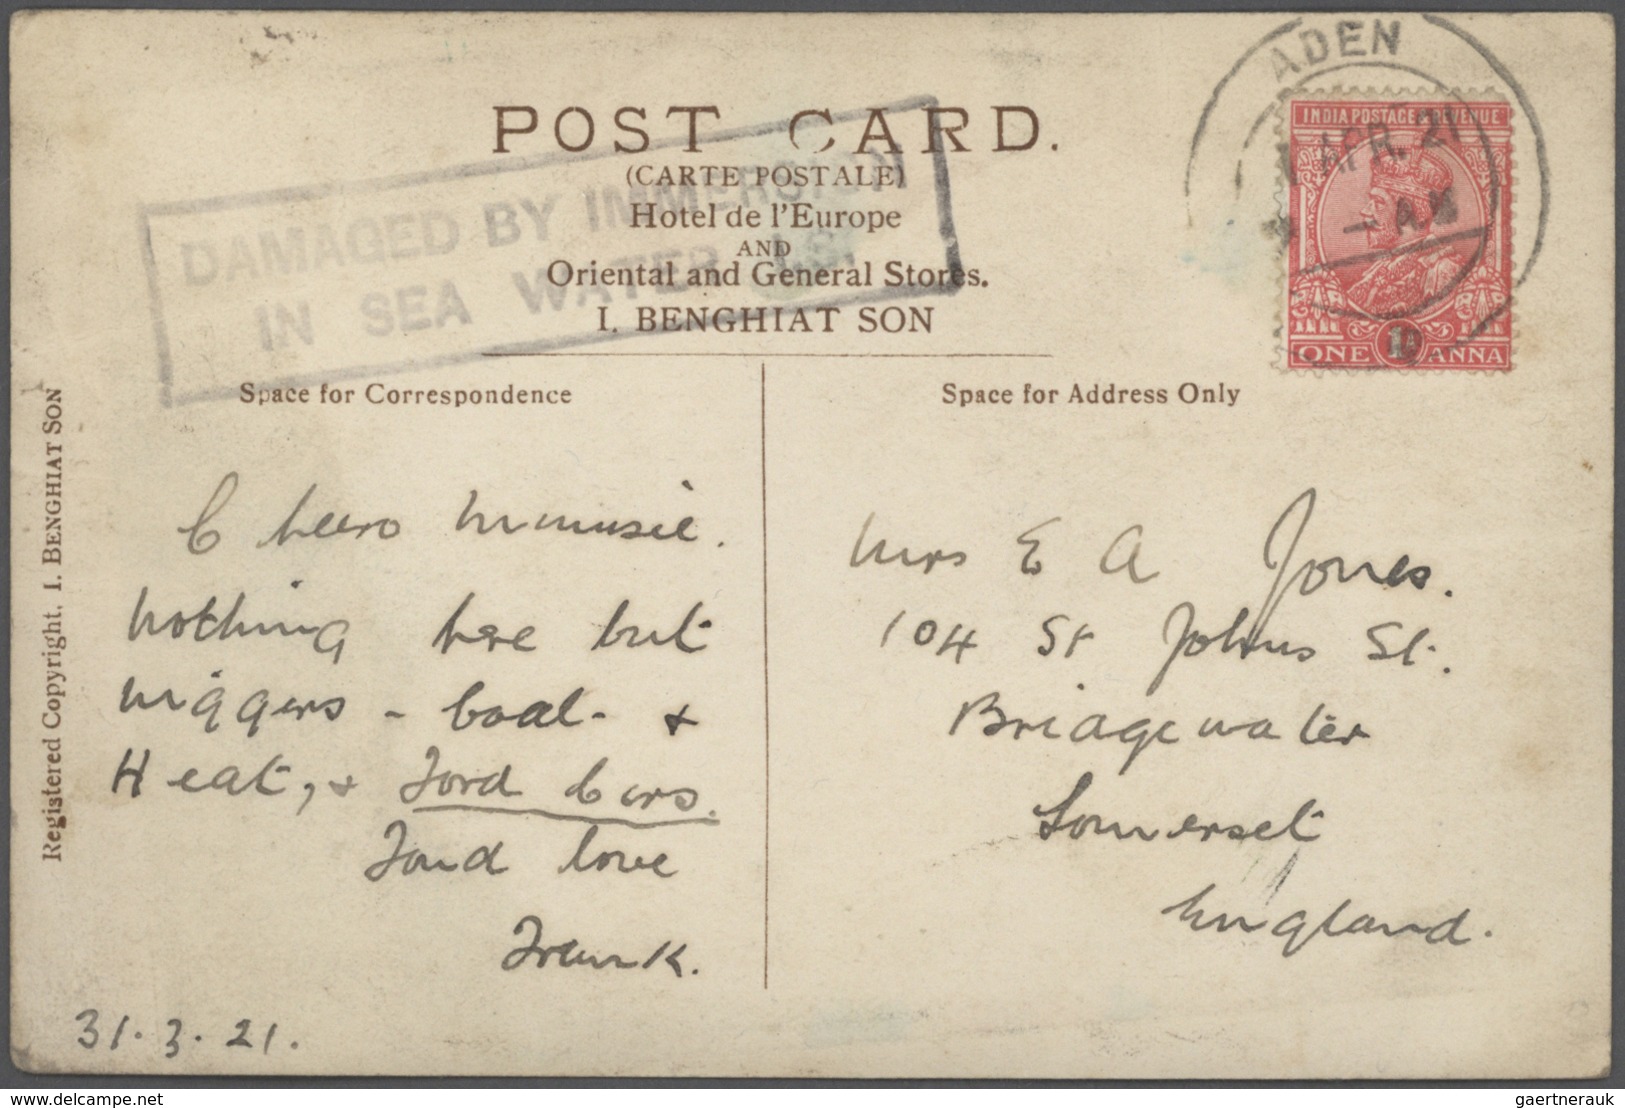 POST CARD.
(CARTE POSTALE)
Hotel de l'Europe
AND
Oriental and General Stores.
I. BENGHIAT SON
DAMAGED BY IMMERSION
IN SEA WATER
ADEN
APR. 21
A.M
INDIA POSTAGE & REVENUE
1A
ONE ANNA
Registered Copyright, I. BENGHIAT SON
Space for Correspondence
Cheero Mmusie.
Nothing here but
niggers - boal - +
Heat, + Ford Cars.
Fond love
Frank.
31.3.21.
Space for Address Only
Mrs E A Jones.
104 St Johns St.
Bridgewater
Somerset
England.
delcampe.net
gaertnerauk